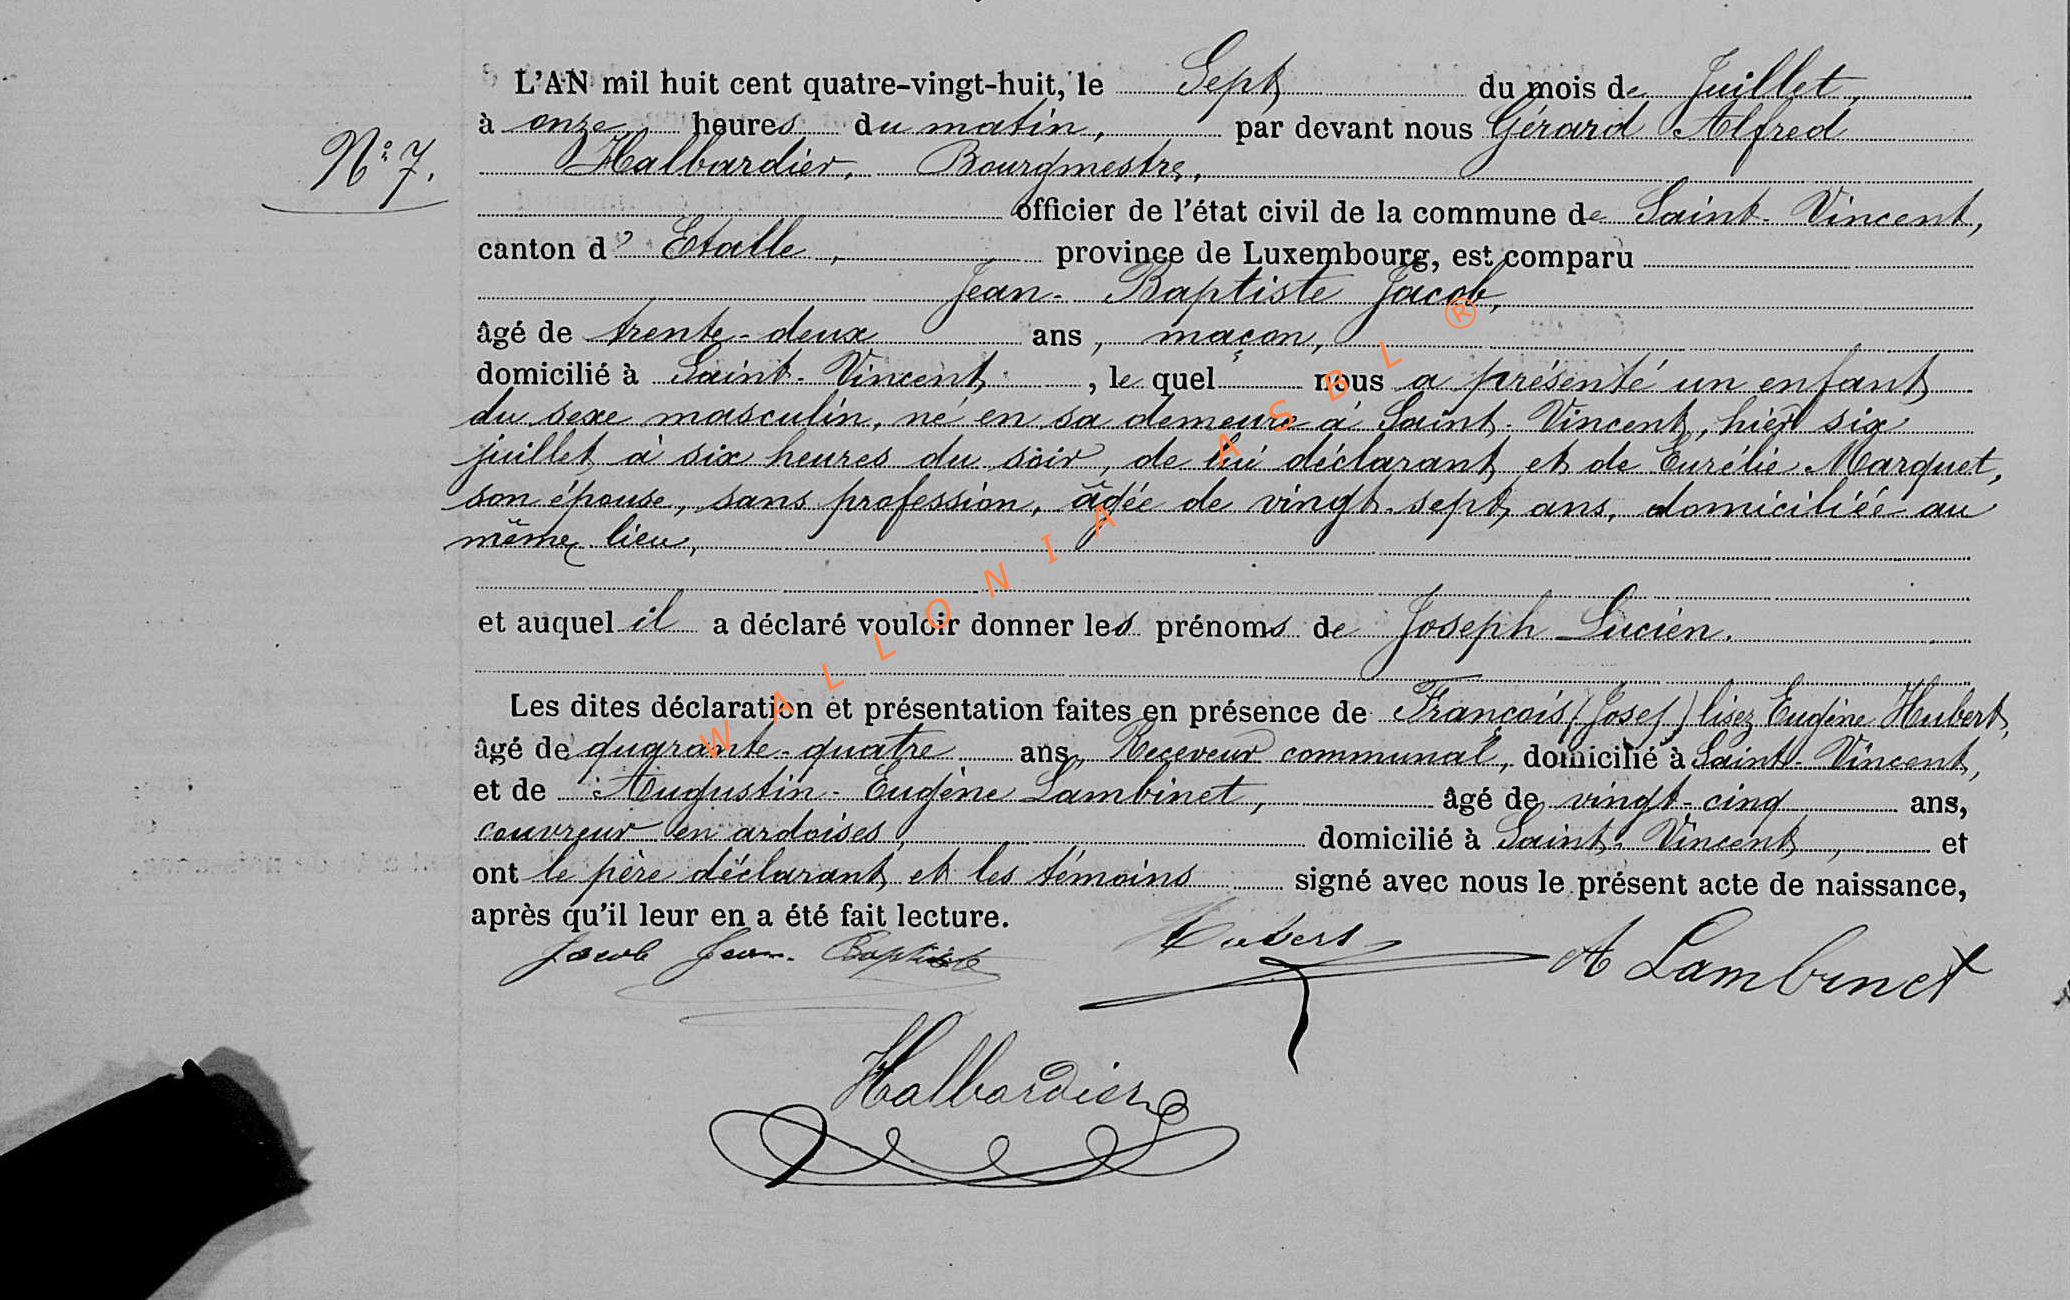 L'AN mil huit cent quatre-vingt-huit, le Sept du mois de Juillet,
à onze heures du matin, par devant nous Gérard Alfred
N° 7.
Halbardier, Bourgmestre,
officier de l'état civil de la commune de Saint-Vincent,
canton d' Etalle, province de Luxembourg, est comparu
Jean-Baptiste Jacob,
âgé de trente-deux ans, maçon,
domicilié à Saint-Vincent, lequel nous a présenté un enfant
du sexe masculin, né en sa demeure à Saint-Vincent, hier six
juillet à six heures du soir, de lui déclarant et de Eurélie Marquet,
son épouse, sans profession, âgée de vingt-sept ans, domiciliée au
même lieu,
et auquel il a déclaré vouloir donner les prénoms de Joseph Lucien.
Les dites déclaration et présentation faites en présence de François (Josef) lisez Eugène Hubert,
âgé de quarante-quatre ans, Receveur communal, domicilié à Saint-Vincent,
et de Augustin-Eugène Lambinet, âgé de vingt-cinq ans,
couvreur en ardoises, domicilié à Saint-Vincent, et
ont le père déclarant et les témoins signé avec nous le présent acte de naissance,
après qu'il leur en a été fait lecture.
Jacob Jean-Baptiste Hubert A Lambinet
Halbardier
WALLONIA ASBL ®